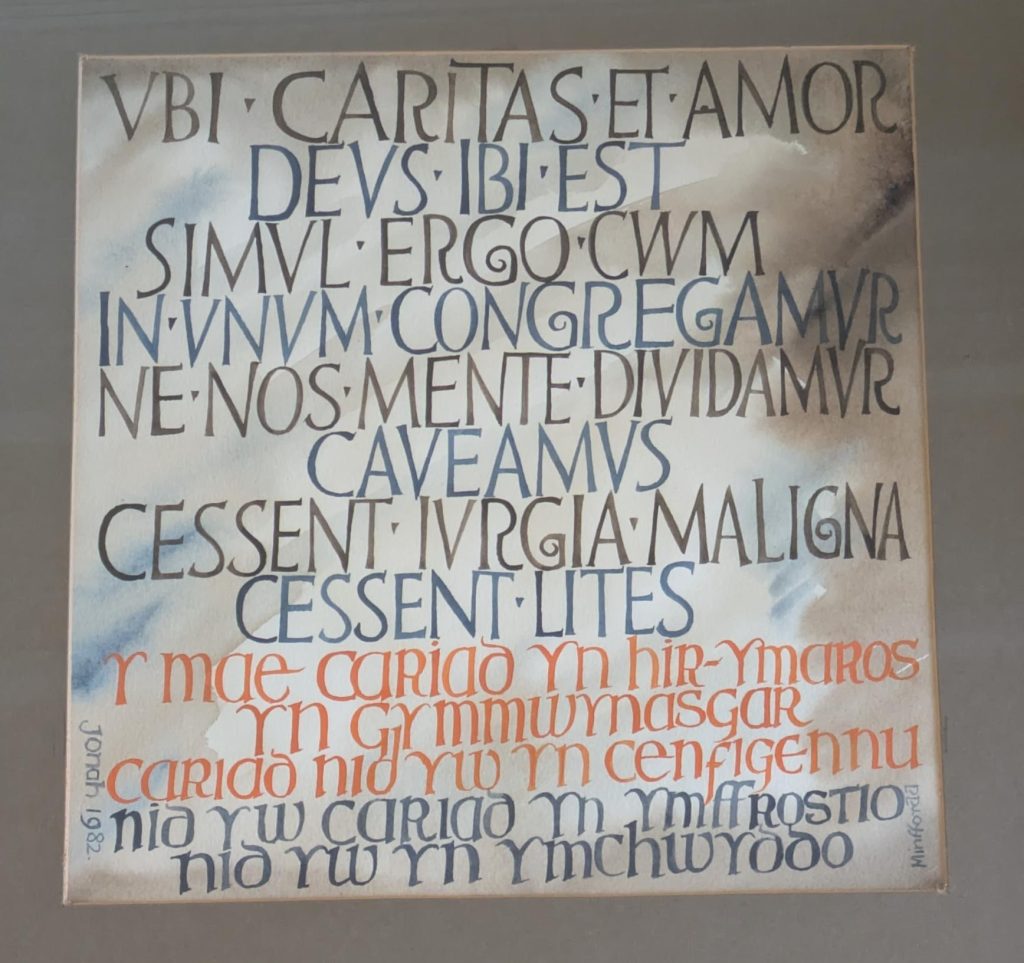 VBI · CARITAS · ET · AMOR
DEVS · IBI · EST
SIMVL · ERGO · CWM
IN · VNVM · CONGREGAMVR
NE · NOS · MENTE · DIVIDAMVR
CAVEAMVS
CESSENT · IVRGIA · MALIGNA
CESSENT · LITES
Y mae cariad yn hir-ymaros
yn gymmwynasgar
cariad nid yw yn cenfigennu
nid yw cariad yn ymffrostio
nid yw yn ymchwyddo
Jonah 1982.
Minffordd